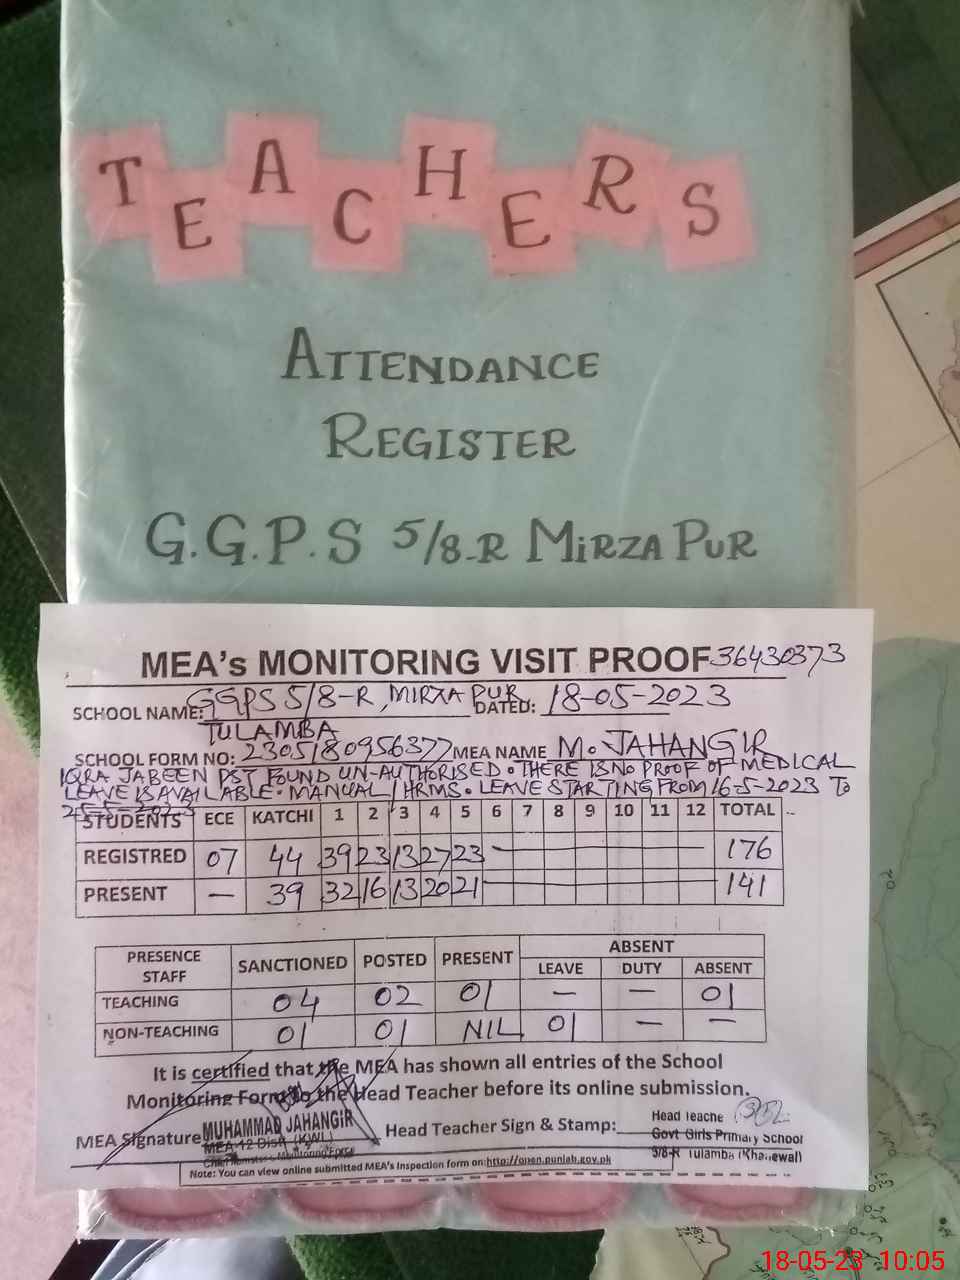 TEACHERS
ATTENDANCE
REGISTER
G.G.P.S 5/8-R MIRZA PUR
MEA's MONITORING VISIT PROOF 36430373
SCHOOL NAME: GGPS 5/8-R, MIRZA PUR DATED: 18-05-2023
TULAMBA
SCHOOL FORM NO: 2305180956377 MEA NAME M. JAHANGIR
IQRA JABEEN PST FOUND UN-AUTHORISED. THERE IS NO PROOF OF MEDICAL
LEAVE IS AVAILABLE. MANUAL/HRMS. LEAVE STARTING FROM 16-5-2023 To
STUDENTS ECE KATCHI 1 2 3 4 5 6 7 8 9 10 11 12 TOTAL
REGISTRED 07 44 39 23 13 27 23 176
PRESENT — 39 32 16 13 20 21 141
PRESENCE STAFF SANCTIONED POSTED PRESENT ABSENT
LEAVE DUTY ABSENT
TEACHING 04 02 01 — — 01
NON-TEACHING 01 01 NIL 01 — —
It is certified that the MEA has shown all entries of the School
Monitoring Form to the Head Teacher before its online submission.
MEA Signature MUHAMMAD JAHANGIR Head Teacher Sign & Stamp: Head Teache
MEA-12 Distt (KWL) Govt Girls Primary School
5/8-R Tulamba (Khanewal)
Note: You can view online submitted MEA's Inspection form on:http://open.punjab.gov.pk
18-05-23 10:05